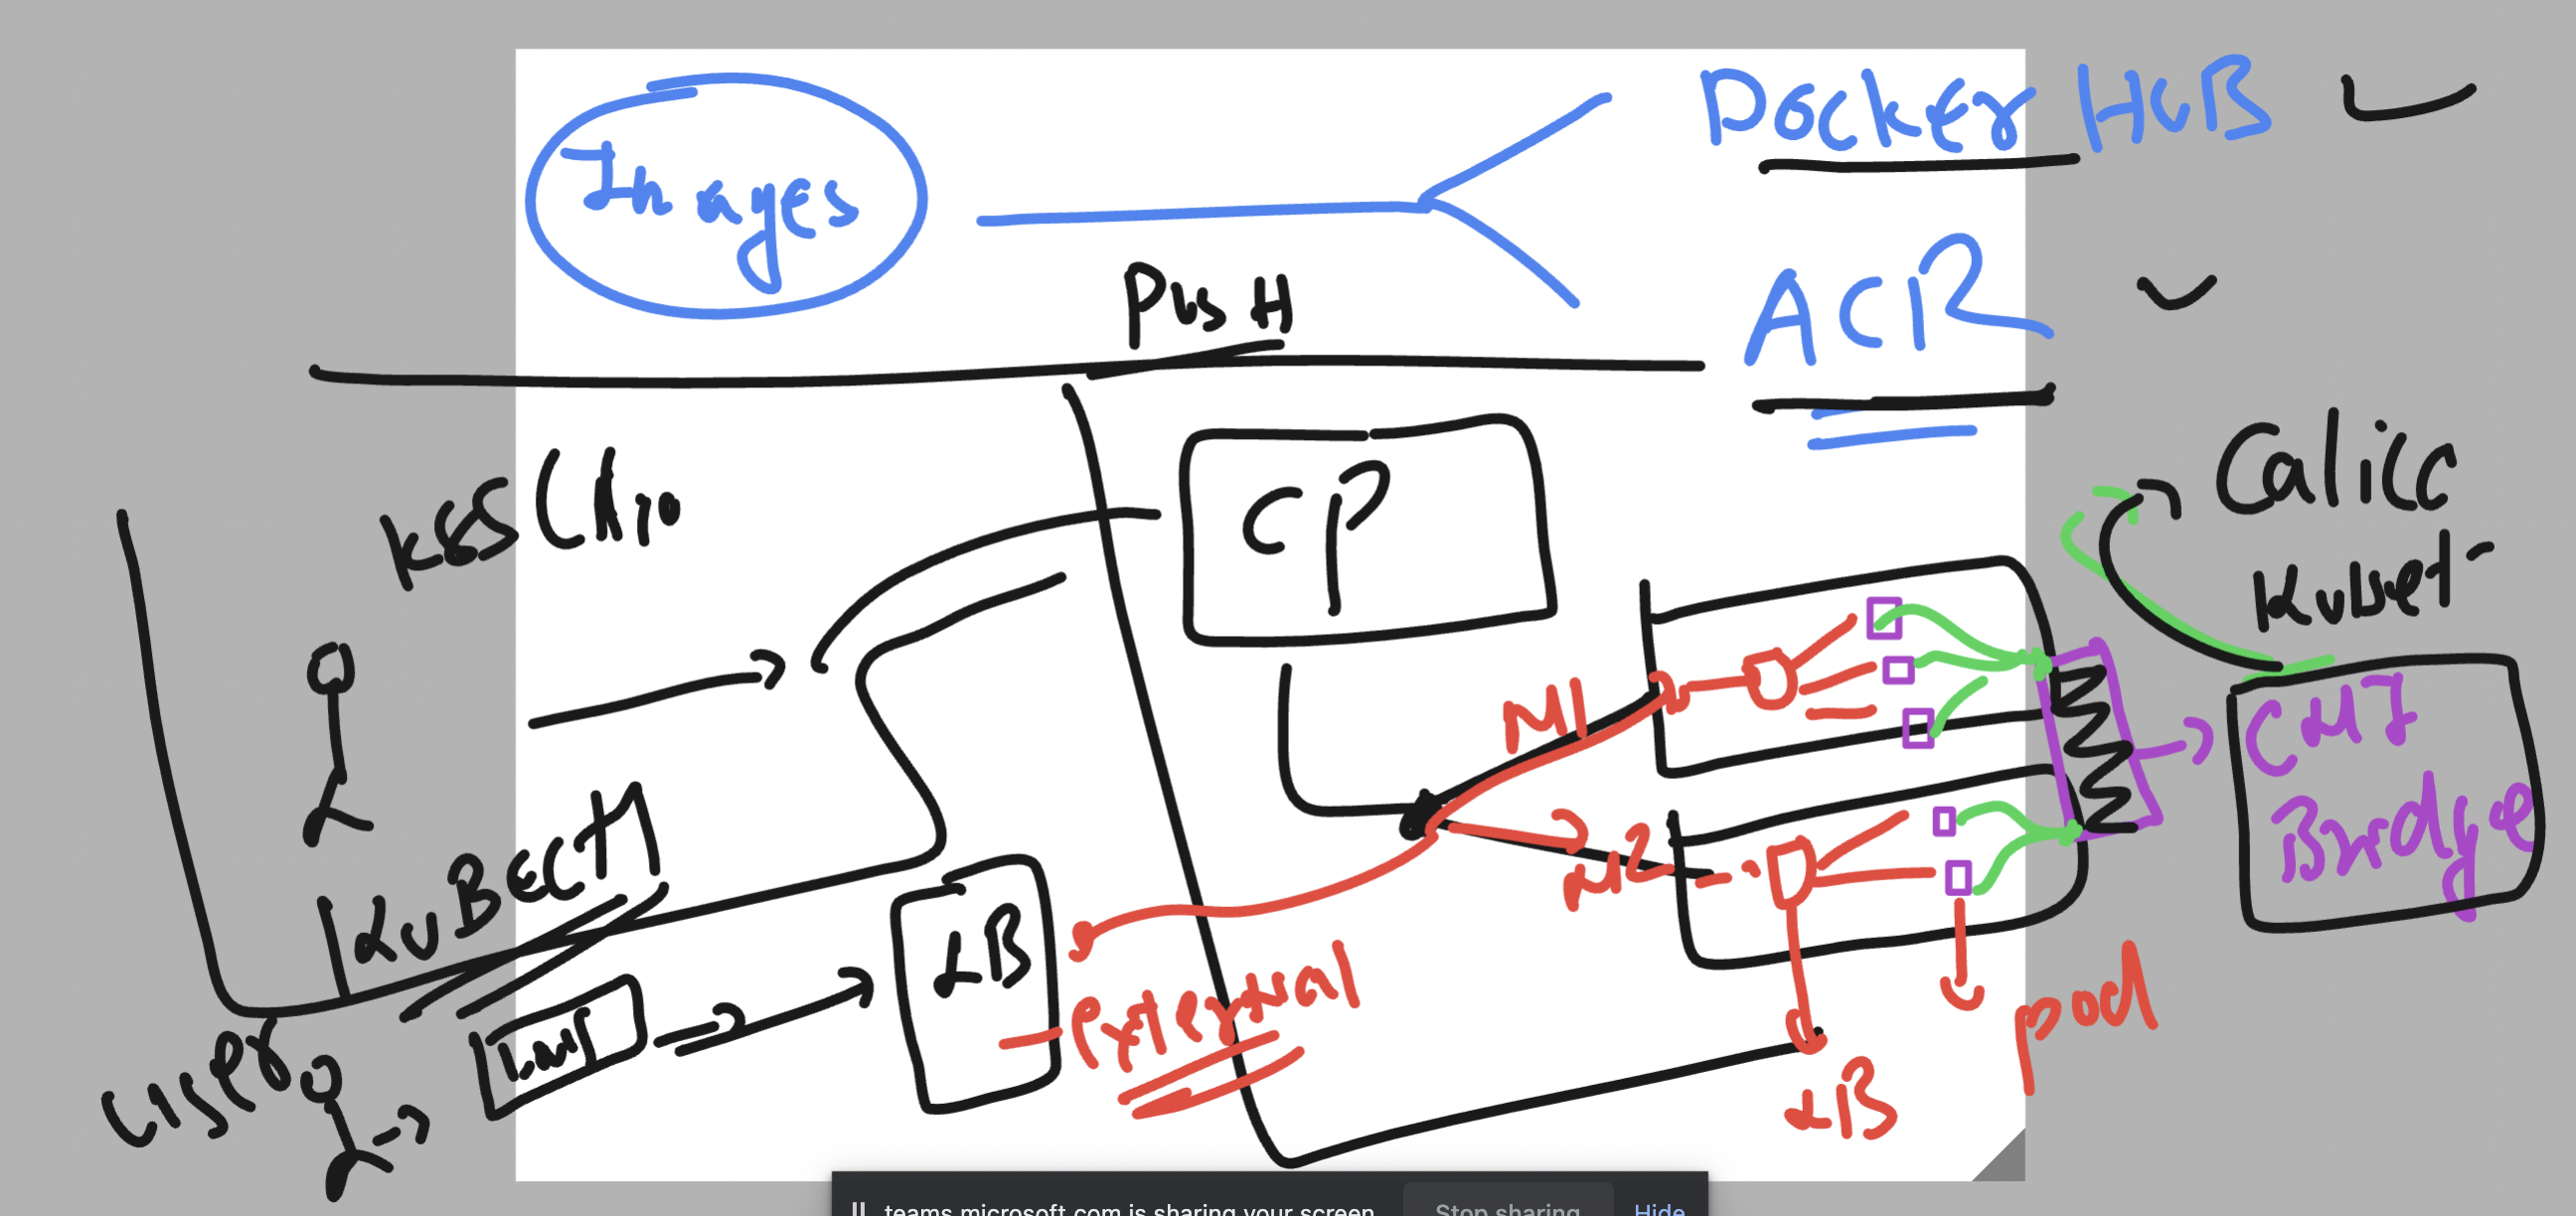 Images
Docker HUB
ACR
PusH
K8S
CP
Calico
Kubnet
M1
M2
CNI
Bridge
KUBECTl
LB
External
pod
LB
User
teams.microsoft.com is sharing your screen.
Stop sharing
Hide